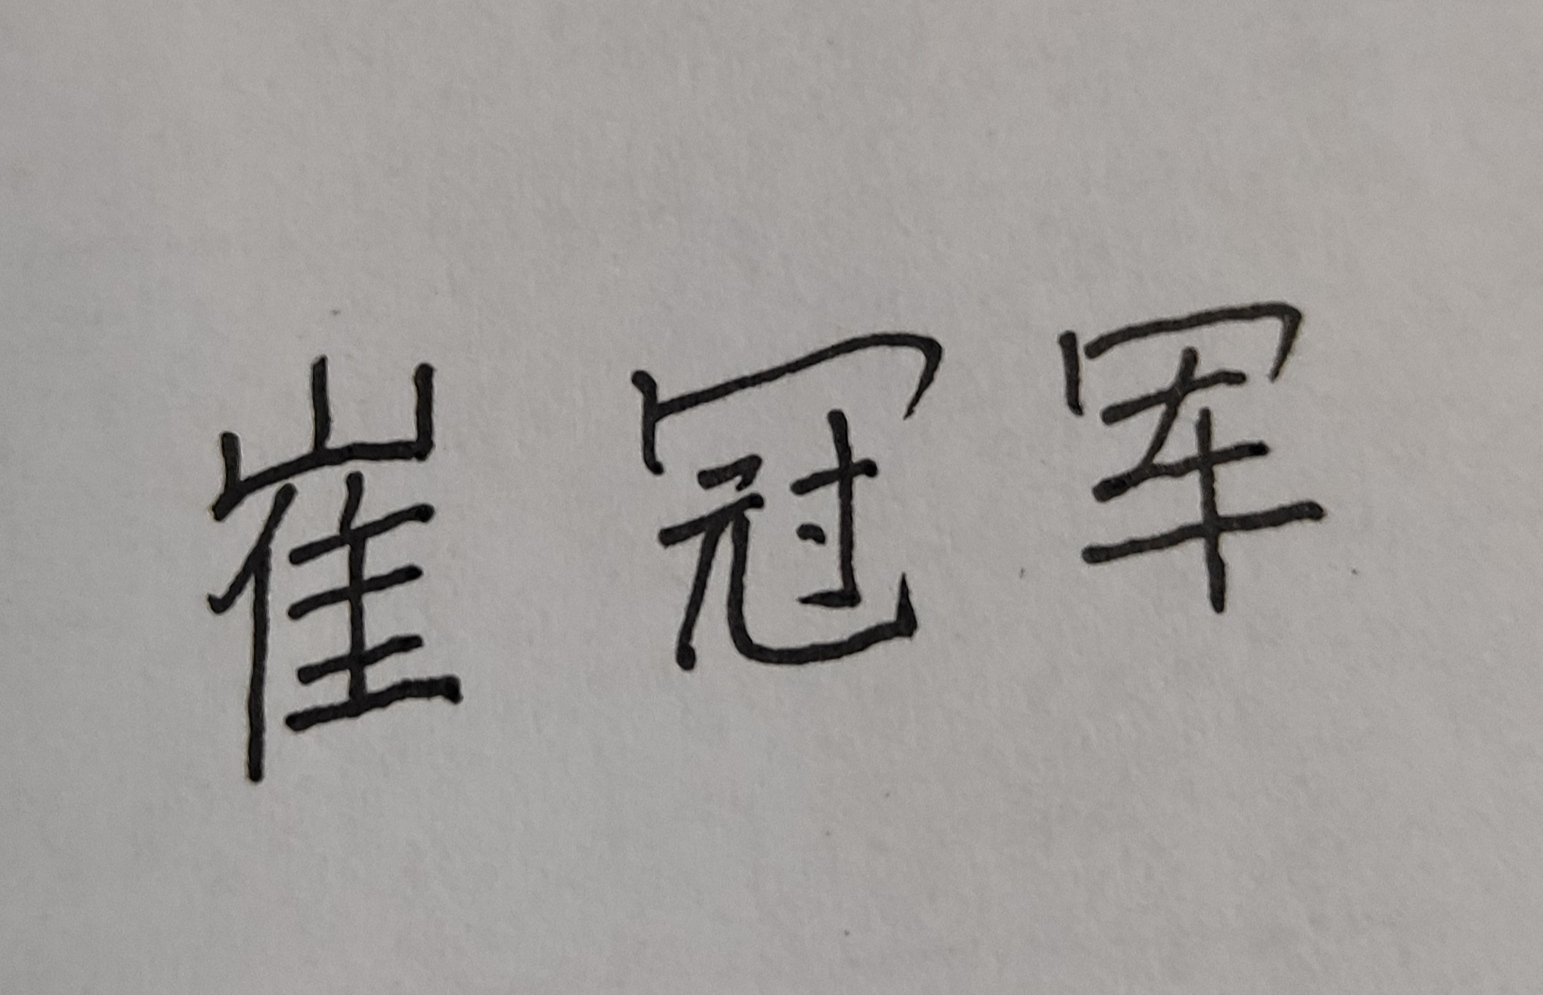 崔冠军